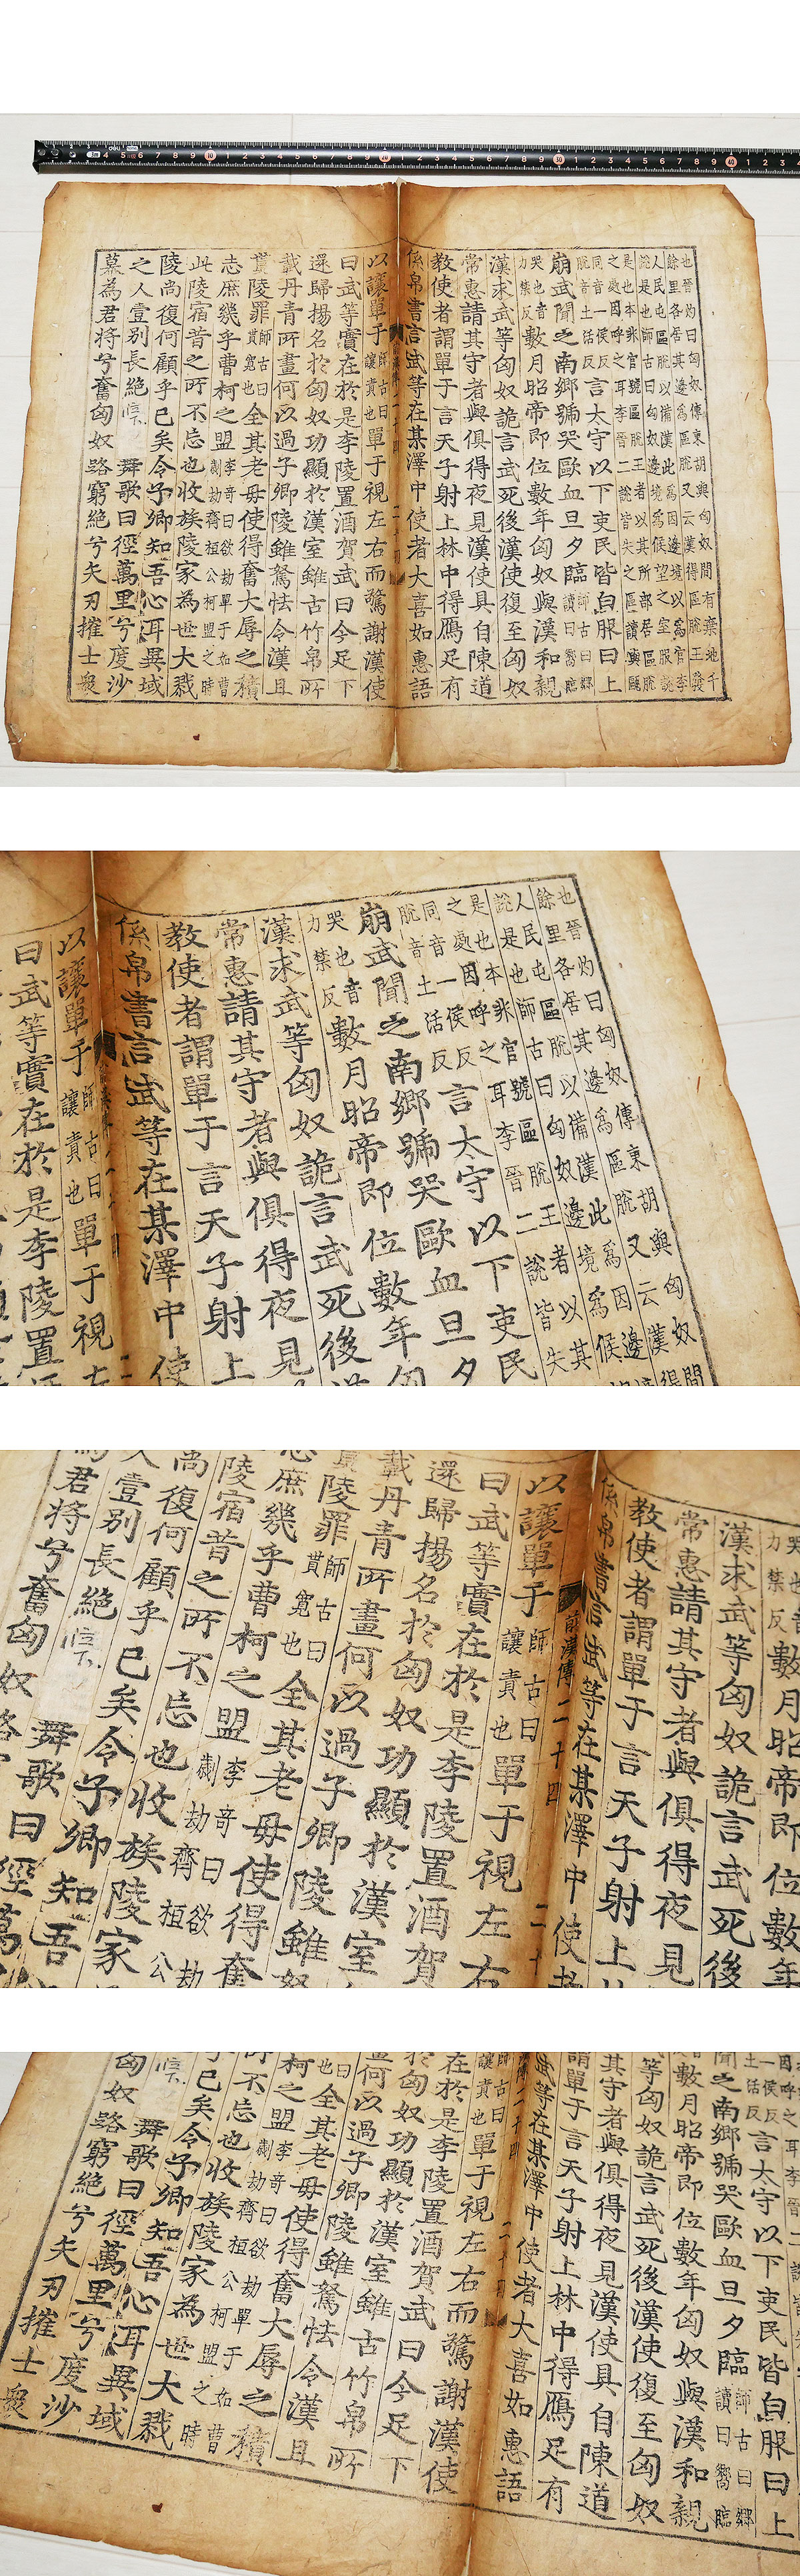 也晉灼曰匈奴傳東胡與匈奴間有棄地千
餘里各居其邊為區脫又云漢得區脫王發
人民屯區脫以備漢此為因邊境以為官李
說是也師古曰匈奴邊境為候望之室服說
是也本非官號區脫王者以其所部居區脫
之處因呼之耳李晉二說皆失之區讀與甌
同音一侯反脫音土活反言太守以下吏民皆白服曰上
崩武聞之南鄉號哭歐血旦夕臨師古曰鄉讀曰嚮臨
哭也音力禁反數月昭帝即位數年匈奴與漢和親
漢求武等匈奴詭言武死後漢使復至匈奴
常惠請其守者與俱得夜見漢使具自陳道
教使者謂單于言天子射上林中得鴈足有
係帛書言武等在某澤中使者大喜如惠語
前漢傳二十四
以讓單于師古曰讓責也單于視左右而驚謝漢使
曰武等實在於是李陵置酒賀武曰今足下
還歸揚名於匈奴功顯於漢室雖古竹帛所
載丹青所畫何以過子卿陵雖駑怯令漢且
貰陵罪師古曰貰寬也全其老母使得奮大辱之積
志庶幾乎曹柯之盟李奇曰欲劫單于如曹劌劫齊桓公柯盟之時
此陵宿昔之所不忘也收族陵家為世大戮
陵尚復何顧乎已矣令子卿知吾心耳異域
之人壹別長絕舞歌曰徑萬里兮度沙
幕為君將兮奮匈奴路窮絕兮矢刃摧士衆